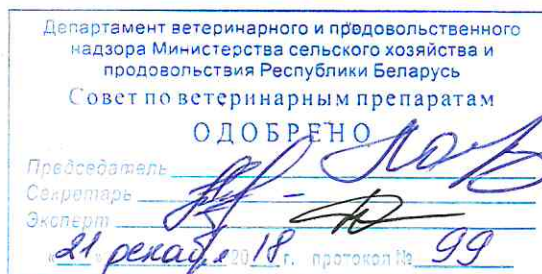 Департамент ветеринарного и продовольственного
надзора Министерства сельского хозяйства и
продовольствия Республики Беларусь
Совет по ветеринарным препаратам
ОДОБРЕНО
Председатель
Секретарь
Эксперт
«21» декабря 2018 г. протокол № 99